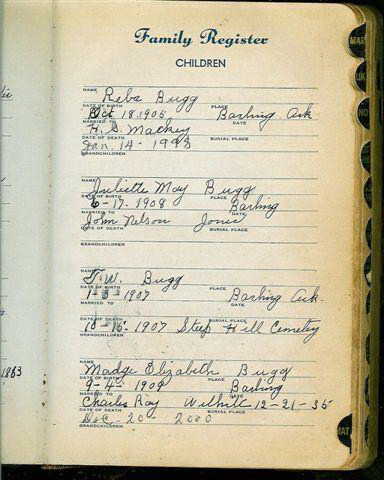 Family Register
CHILDREN
NAME
Reba Bugg
DATE OF BIRTH PLACE
Oct 18, 1905 Barling Ark
MARRIED TO DATE
H. S. Mackey
DATE OF DEATH BURIAL PLACE
Jan. 14 - 1998
GRANDCHILDREN
NAME
Juliette May Bugg
DATE OF BIRTH PLACE
6-17-1908 Barling
MARRIED TO DATE
John Nelson Jones
DATE OF DEATH BURIAL PLACE
GRANDCHILDREN
NAME
J. W. Bugg
DATE OF BIRTH PLACE
1907 Barling Ark.
MARRIED TO DATE
DATE OF DEATH BURIAL PLACE
10-15-1907 Steep Hill Cemetery
GRANDCHILDREN
NAME
Madge Elizabeth Bugg
DATE OF BIRTH PLACE
9-4-1909 Barling
MARRIED TO DATE
Charles Ray 12-21-35
DATE OF DEATH BURIAL PLACE
Dec 20 - 2000
GRANDCHILDREN
1863
MAR
LUK
MAT